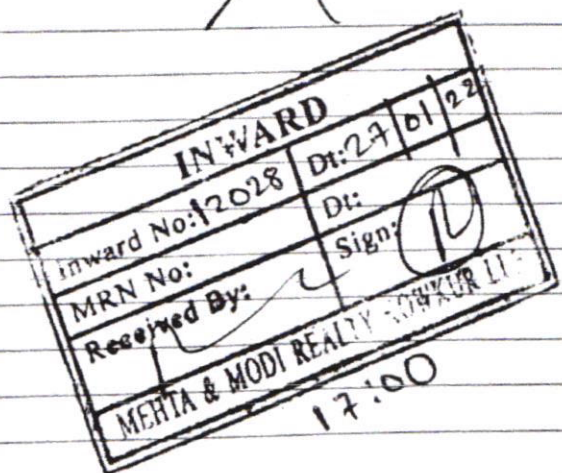 INWARD
Inward No: 12028 Dt: 27 01 22
MRN No: Dt:
Received By: Sign:
MEHTA & MODI REALTY KOWKUR LLP
17:00